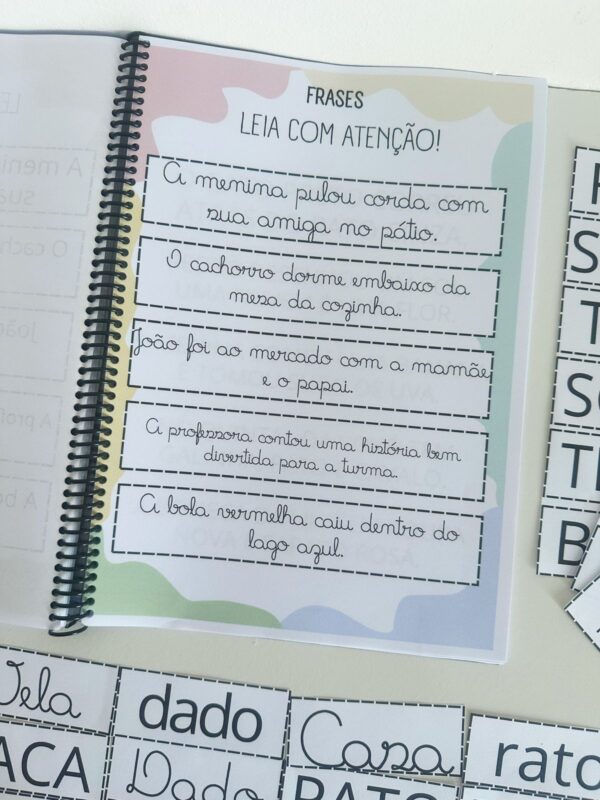 FRASES
LEIA COM ATENÇÃO!
A menina pulou corda com
sua amiga no pátio.
O cachorro dorme embaixo da
mesa da cozinha.
João foi ao mercado com a mamãe
e o papai.
A professora contou uma história bem
divertida para a turma.
A bola vermelha caiu dentro do
lago azul.
Vela
dado
Casa
rato
Dado